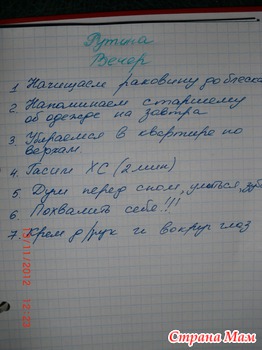 Рутина
Вечер
1 Начищаем раковину до блеска
2. Напоминаем старшему
об одежде на завтра
3. Убираемся в квартире по
верхам.
4. Гасим ХС (2 мин)
5. Душ перед сном, умыться, зубы
6. Похвалить себя!!!
7. Крем д/рук и вокруг глаз
13/11/2012 12:23
Страна Мам